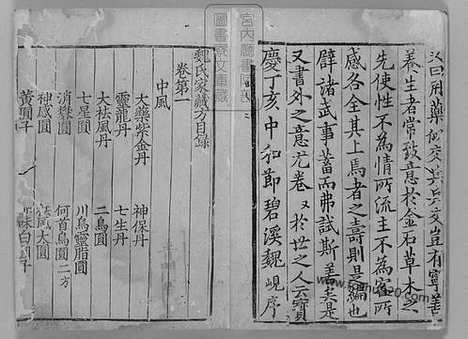 父曰用藥如交兵兵交豈有寧善
養生者常致意於金石草木之
先使性不為情所流主不為客所
感各全其上焉者之壽則是編也
譬諸武事蓄而弗試斯善矣是
又書外之意尤卷於世之人云寶
慶丁亥中和節碧溪魏峴序
魏氏家藏方目錄
卷第一
中風
大藥紫金丹 神保丹
靈龍丹 七生丹
大祛風丹 二烏圓
七星圓 川烏靈脂圓
消 圓 何首烏圓二方
神感圓 風大圓
黃 白
宮內廳書陵部
圖書寮文庫藏